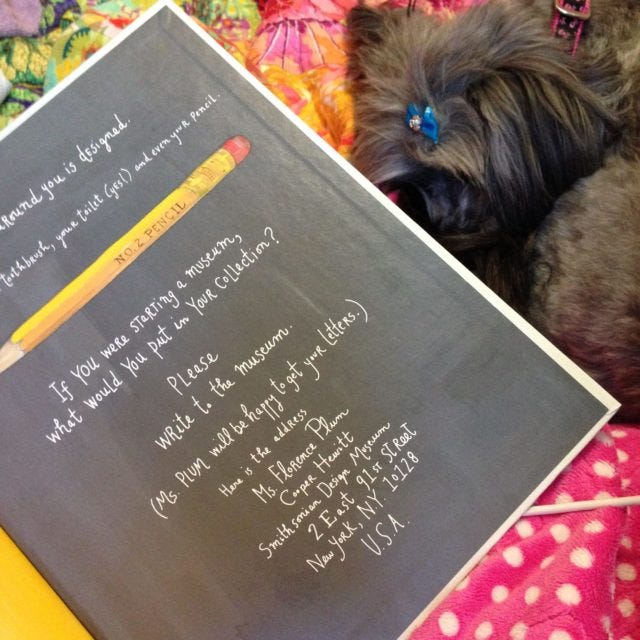 around you is designed.
toothbrush, your toilet (yes!) and even your pencil.
NO. 2 PENCIL
If YOU were starting a museum,
what would You put in YOUR COLLECTION?
PLease
WRite to the museum.
(Ms. PLUM will be happy to get your Letters.)
Here is the address
Ms. Florence Plum
Cooper Hewitt
Smithsonian Design Museum
2 East 91st STReet
New York, NY. 10128
U.S.A.